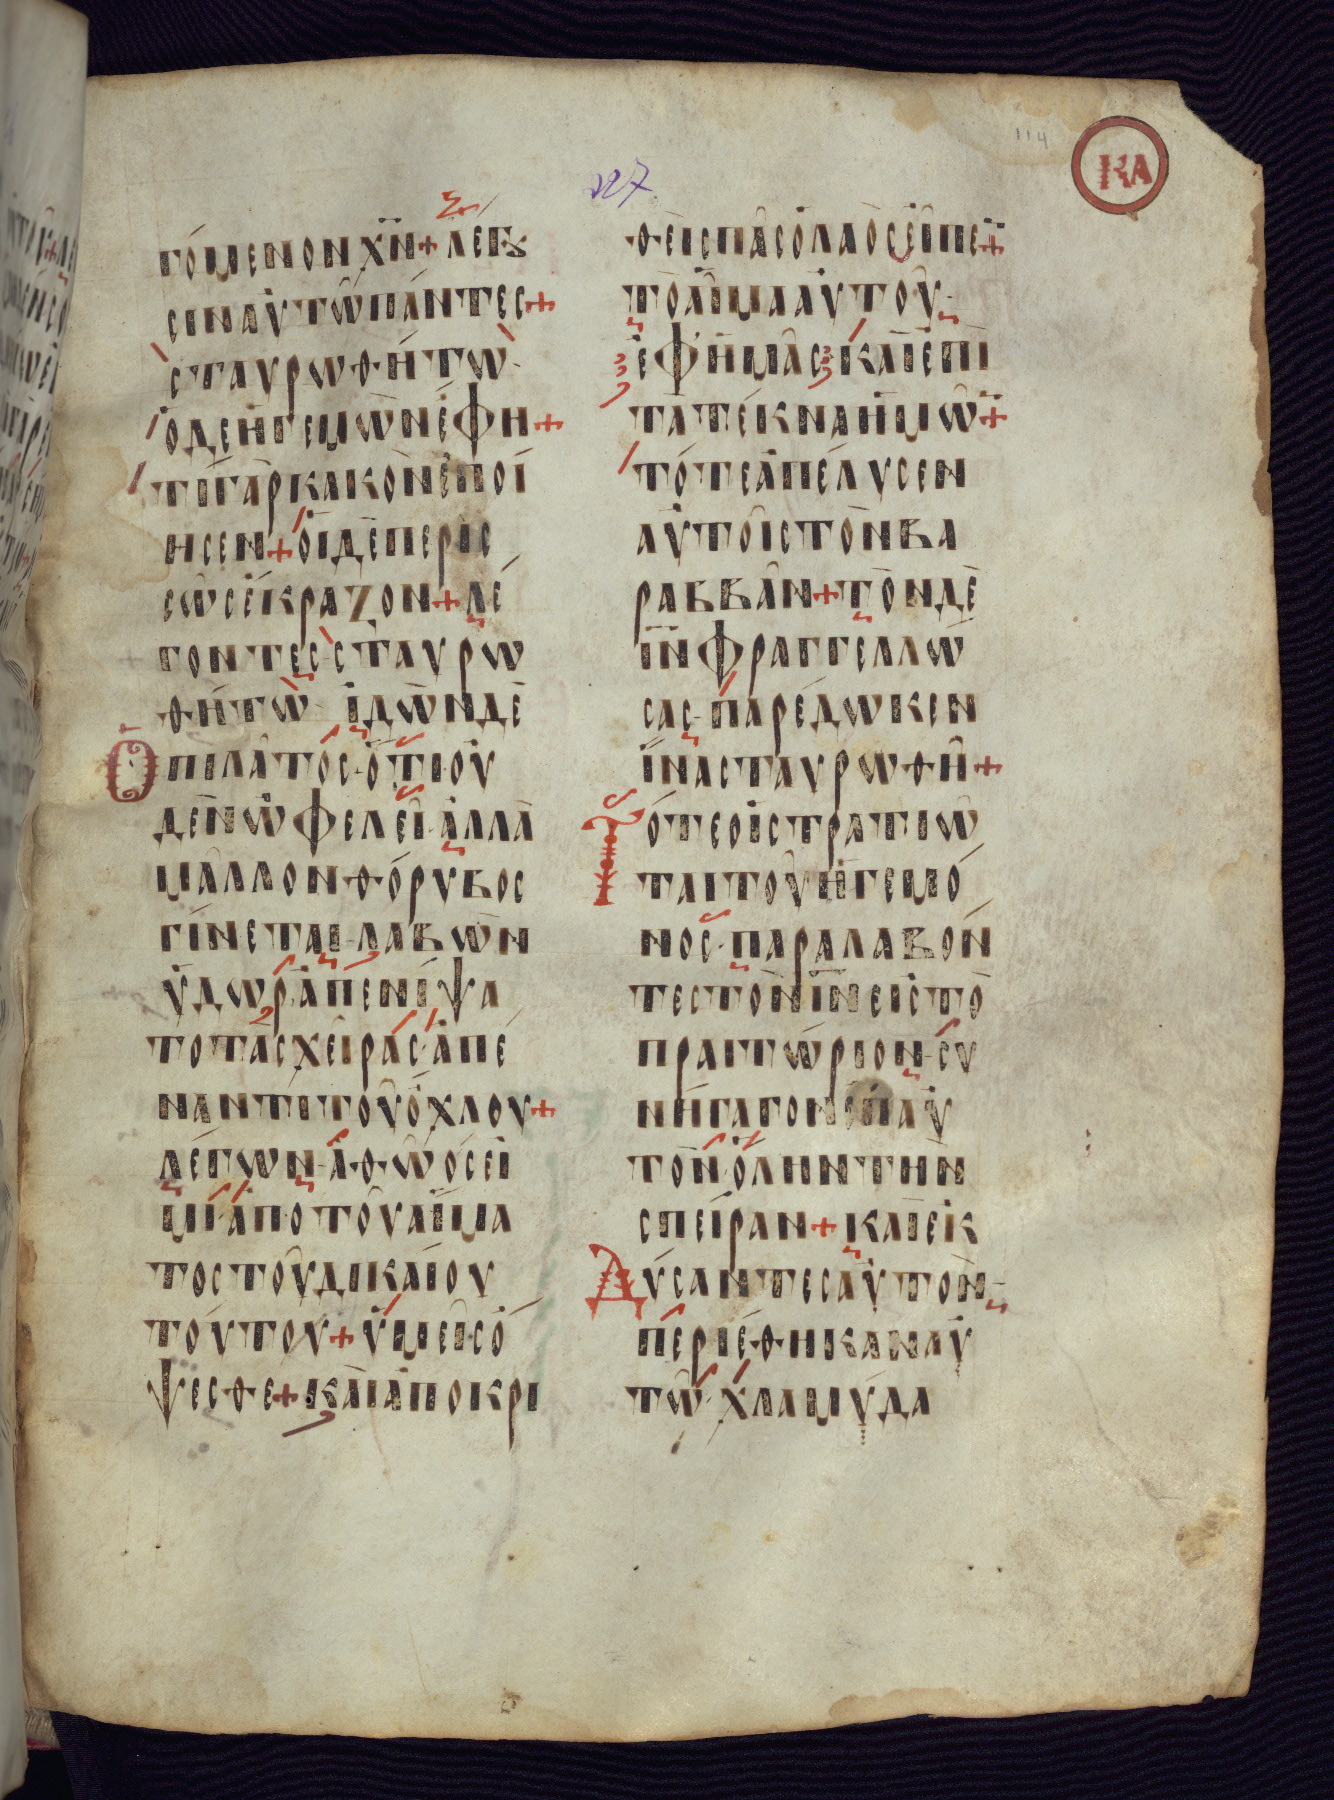 114
ΚΑ
227
ΓΌΜΕΝΟΝ Χ̅Ν̅ + ΛΈΓȢ
ΣΙΝ ΑΥ̓ΤΩ͂ ΠΆΝΤΕΣ +
ΣΤΑΥΡΩΘΉΤΩ·
Ὁ ΔΕ ἩΓΕΜῺΝ ἜΦΗ +
ΤΊ ΓᾺΡ ΚΑΚῸΝ ἘΠΟΊ
ΗΣΕΝ + ΟἹ ΔῈ ΠΕΡΙΣ
ΣΩ͂Σ ἜΚΡΑΖΟΝ + ΛΈ
ΓΟΝΤΕΣ· ΣΤΑΥΡΩ
ΘΉΤΩ· ἸΔῺΝ ΔῈ
Ὁ ΠΙΛΑ͂ΤΟΣ· ὍΤΙ ΟΥ̓
ΔῈΝ ὨΦΕΛΕΙ͂· ἈΛΛᾺ
ΜΑ͂ΛΛΟΝ ΘΌΡΥΒΟΣ
ΓΊΝΕΤΑΙ· ΛΑΒῺΝ
ὝΔΩΡ· ἈΠΕΝΊΨΑ
ΤΟ ΤᾺΣ ΧΕΙ͂ΡΑΣ· ἈΠΈ
ΝΑΝΤΙ ΤΟΥ͂ ὌΧΛΟΥ +
ΛΈΓΩΝ· ἈΘΩ͂ΟΣ ΕἸ
ΜΙ· ἈΠΟ ΤΟΥ͂ ΑἽΜΑ
ΤΟΣ ΤΟΥ͂ ΔΙΚΑΊΟΥ
ΤΟΎΤΟΥ + ὙΜΕΙ͂Σ Ὄ
ΨΕΣΘΕ + ΚΑῚ ἈΠΟΚΡΙ
ΘΕῚΣ ΠΑ͂Σ Ὁ ΛΑῸΣ ΕἾΠΕ +
ΤῸ ΑἿΜΑ ΑΥ̓ΤΟΥ͂·
ἘΦ' ἩΜΑ͂Σ· ΚΑῚ ἘΠῚ
ΤᾺ ΤΈΚΝΑ ἩΜΩ͂ +
ΤΌΤΕ ἈΠΈΛΥΣΕΝ
ΑΥ̓ΤΟΙ͂Σ ΤῸΝ ΒΑ
ΡΑΒΒΑ͂Ν + ΤῸΝ ΔῈ
Ι̅Ν̅ ΦΡΑΓΓΕΛΛΩ
ΣΑΣ· ΠΑΡΈΔΩΚΕΝ
ἽΝΑ ΣΤΑΥΡΩΘΗ͂ +
ΤΌΤΕ ΟἹ ΣΤΡΑΤΙΩ͂
ΤΑΙ ΤΟΥ͂ ἩΓΕΜΌ
ΝΟΣ· ΠΑΡΑΛΑΒΌΝ
ΤΕΣ ΤῸΝ Ι̅Ν̅ ΕἸΣ ΤῸ
ΠΡΑΙΤΏΡΙΟΝ· ΣΥ
ΝΉΓΑΓΟΝ ἘΠ ΑΥ̓
ΤῸΝ· ὍΛΗΝ ΤΗΝ
ΣΠΕΙ͂ΡΑΝ + ΚΑῚ ἘΚ
ΔΎΣΑΝΤΕΣ ΑΥ̓ΤῸΝ·
ΠΕΡΙΈΘΗΚΑΝ ΑΥ̓
ΤΩ͂· ΧΛΑΜΎΔΑ